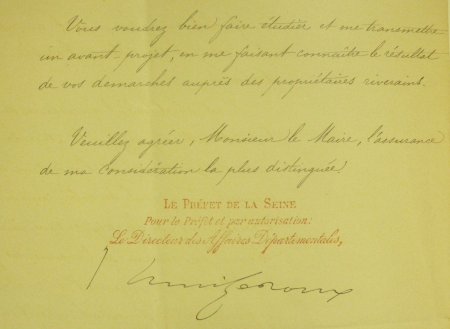 Vous voudrez bien faire étudier et me transmettre
un avant-projet, en me faisant connaître le résultat
de vos démarches auprès des propriétaires riverains.
Veuillez agréer, Monsieur le Maire, l'assurance
de ma considération la plus distinguée.
LE PRÉFET DE LA SEINE
Pour le Préfet et par autorisation:
Le Directeur des Affaires Départementales,